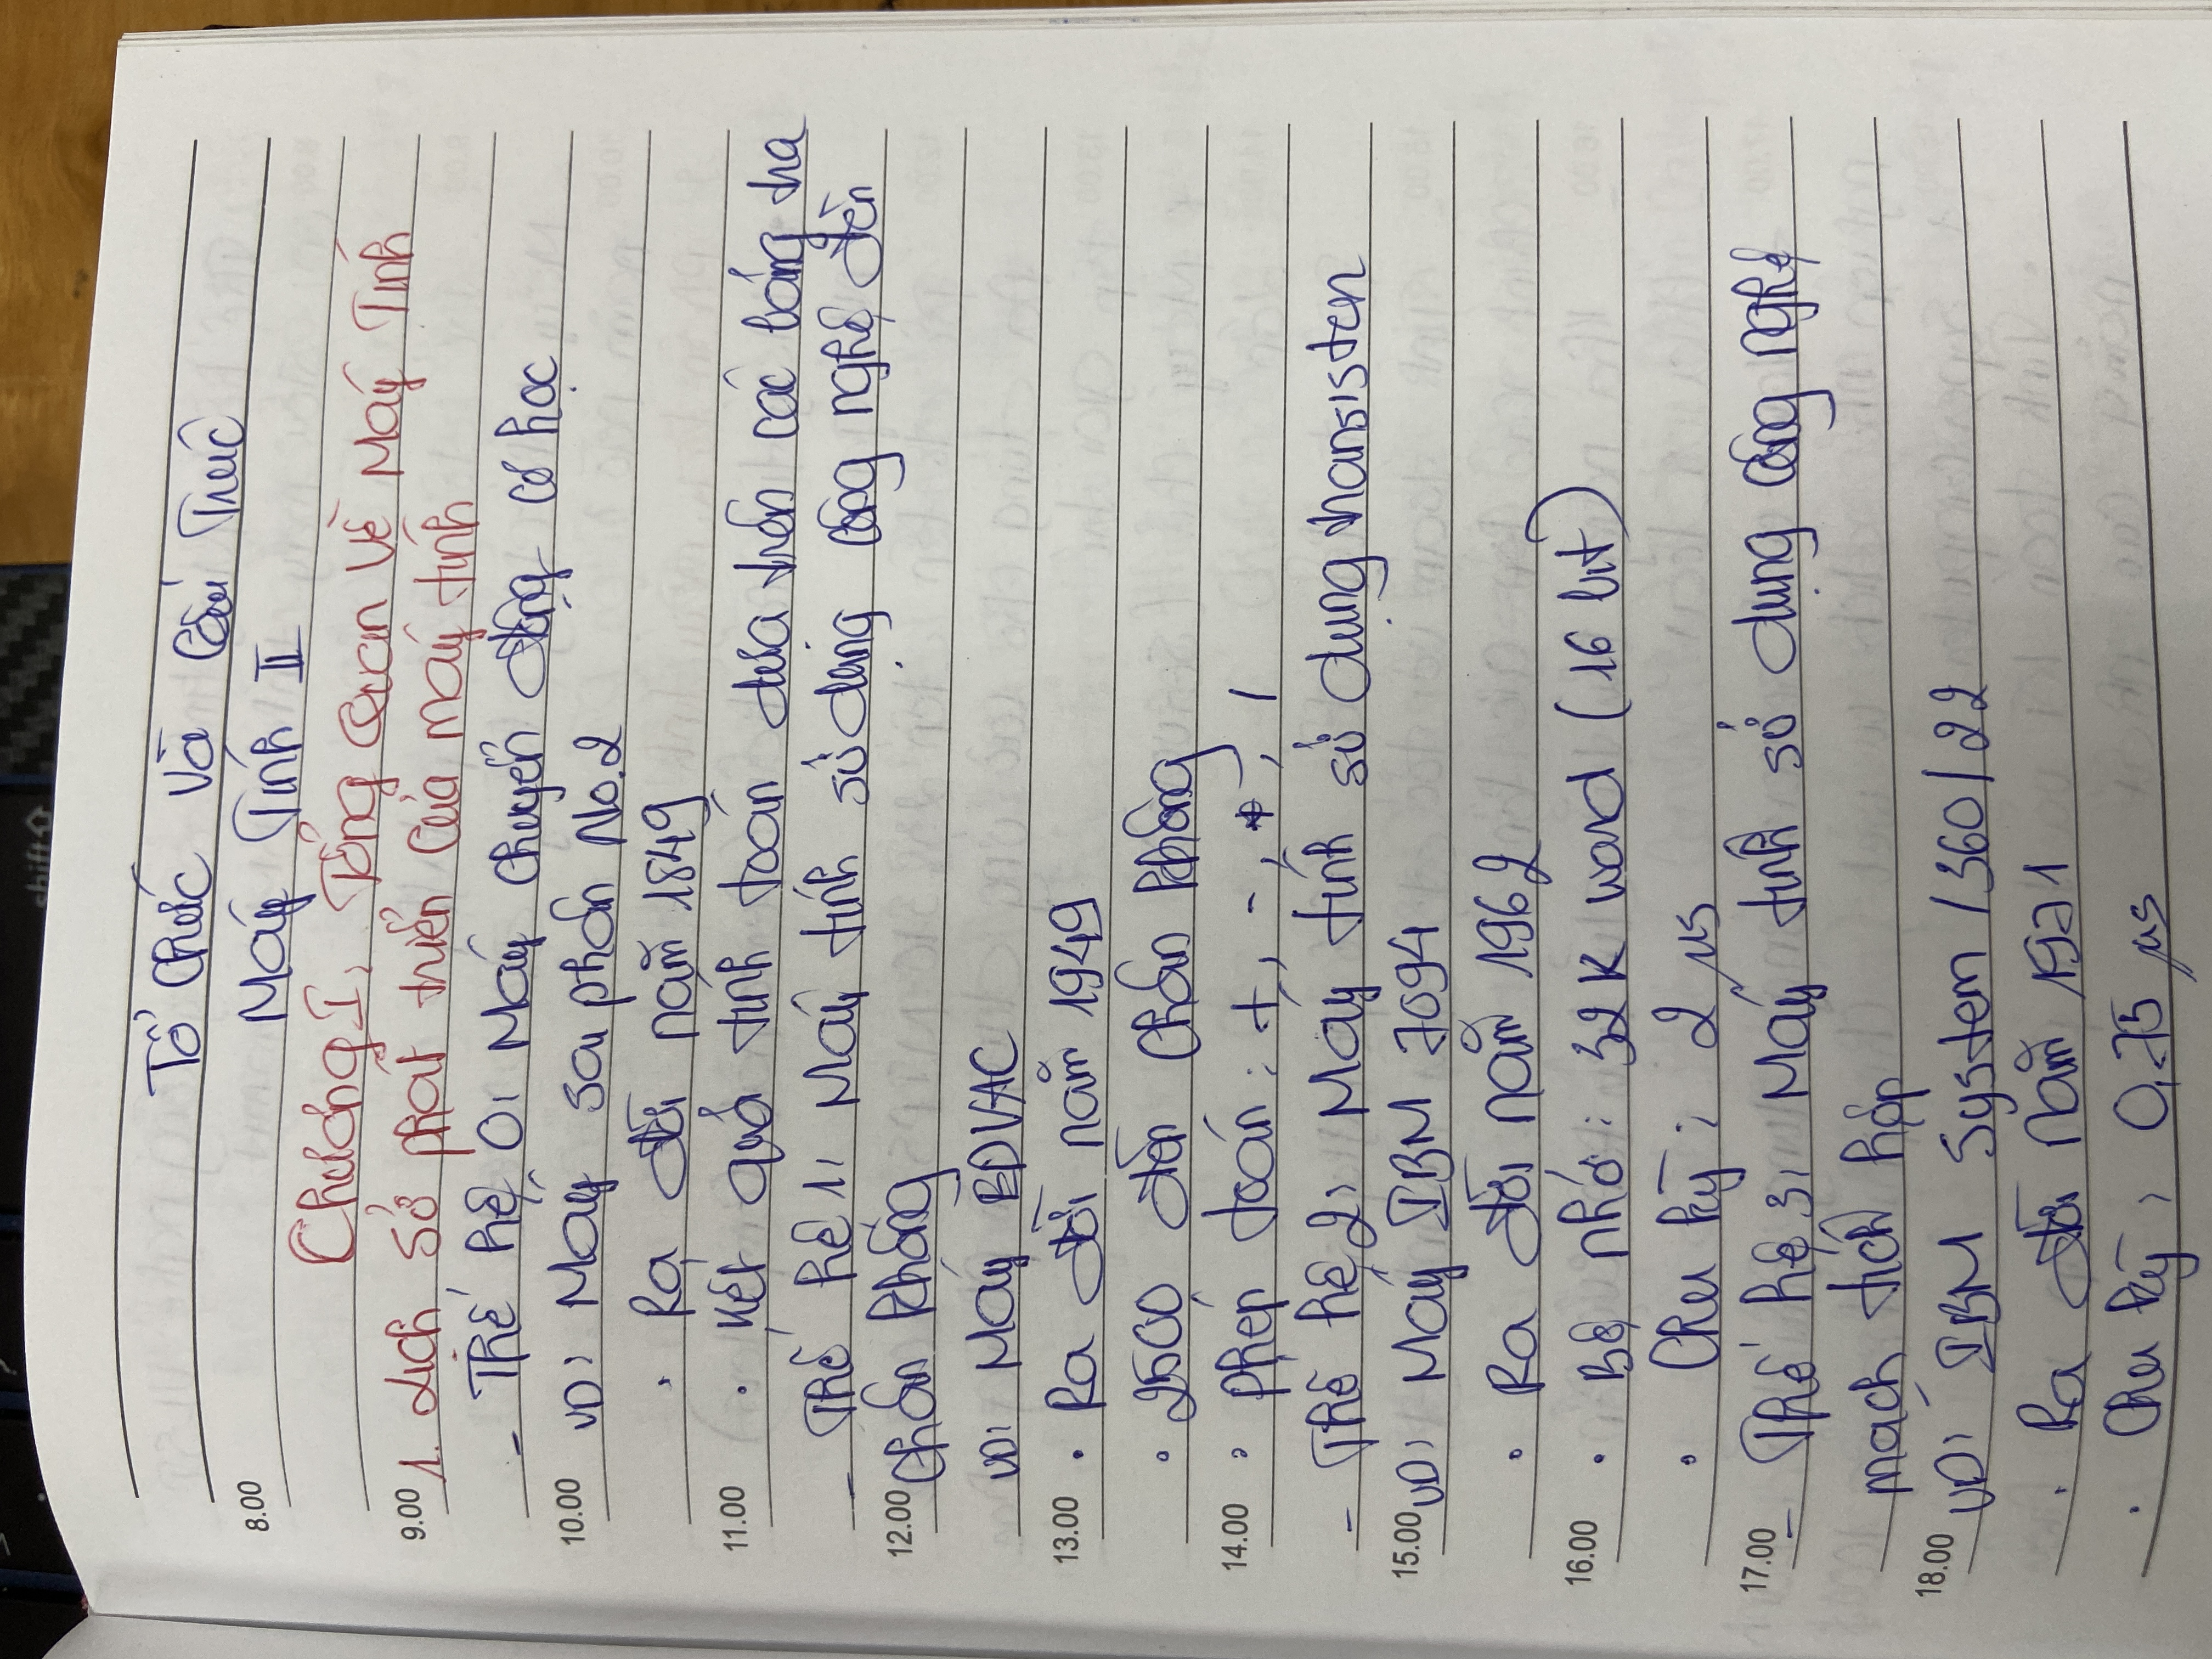 shift
Tổ Chức Và Cấu Trúc
8.00
Máy Tính II
Chương I, Tổng Quan Về Máy Tính
9.00 1. Lịch sở phát triển của máy tính
- Thế hệ 0, Máy chuyển động cơ học
10.00 VD: Máy sai phân No.2
• Ra đời năm 1849
11.00 • Kết quả tính toán dựa trên các bảng tra
- Thế hệ 1, Máy tính sử dụng công nghệ đèn
12.00 chân không
VD: Máy EDVAC
13.00 • Ra đời năm 1949
• 2500 đèn chân không
14.00 • phép toán: +, -, *, /
- Thế hệ 2, Máy tính sử dụng transisten
15.00 VD: Máy IBM 7094
• Ra đời năm 1962
16.00 • Bộ nhớ: 32K word (16 bit)
• Chu kỳ: 2 µs
17.00 - Thế hệ 3, Máy tính sử dụng công nghệ
mạch tích hợp
18.00 VD: IBM System /360/22
• Ra đời năm 1971
• Chu kỳ, 0,75 µs